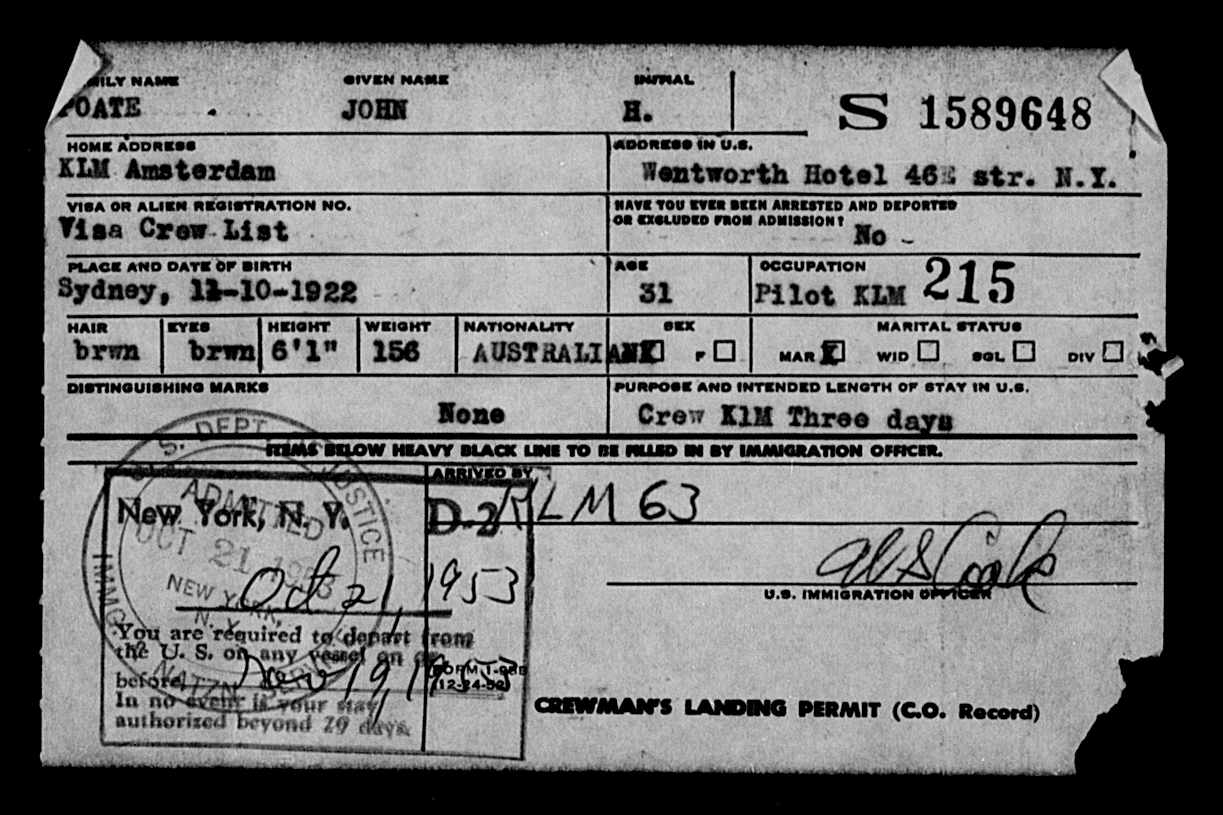 FAMILY NAME GIVEN NAME INITIAL
POATE JOHN H. S 1589648
HOME ADDRESS ADDRESS IN U.S.
KLM Amsterdam Wentworth Hotel 46E str. N.Y.
VISA OR ALIEN REGISTRATION NO. HAVE YOU EVER BEEN ARRESTED AND DEPORTED
OR EXCLUDED FROM ADMISSION?
Visa Crew List No -
PLACE AND DATE OF BIRTH AGE OCCUPATION 215
Sydney, 11-10-1922 31 Pilot KLM
HAIR EYES HEIGHT WEIGHT NATIONALITY SEX MARITAL STATUS
brwn brwn 6'1" 156 AUSTRALIAN X F MAR X WID SGL DIV
DISTINGUISHING MARKS PURPOSE AND INTENDED LENGTH OF STAY IN U.S.
None Crew KLM Three days
ITEMS BELOW HEAVY BLACK LINE TO BE FILLED IN BY IMMIGRATION OFFICER.
ARRIVED BY
KLM 63
U.S. DEPT. JUSTICE
IMMG. & NATZN. SERVICE
ADMITTED
OCT 21 1953
NEW YORK,
N. Y.
New York, N. Y. D-2
Oct 21, 1953
U.S. IMMIGRATION OFFICER
You are required to depart from
the U. S. on any vessel on or
before Nov 19, 1953
In no event is your stay
authorized beyond 29 days.
FORM I-95B
(12-24-52)
CREWMAN'S LANDING PERMIT (C.O. Record)